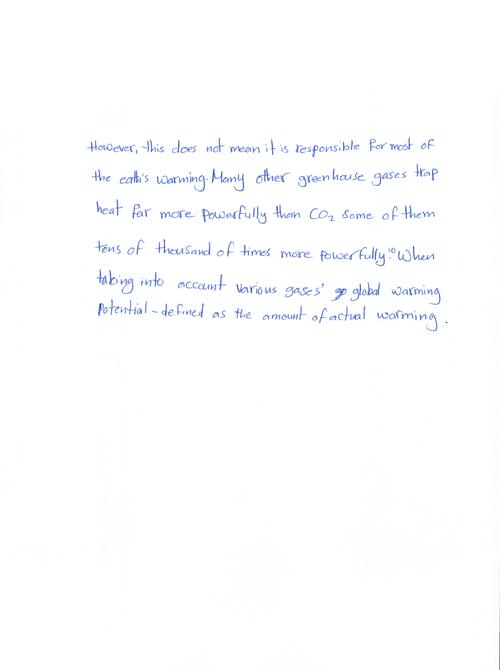 However, this does not mean it is responsible for most of
the eath's warming. Many other greenhouse gases trap
heat far more powerfully than CO₂ some of them
tens of thousand of times more powerfully.¹⁰ When
taking into account various gases' go global warming
potential - defined as the amount of actual warming.